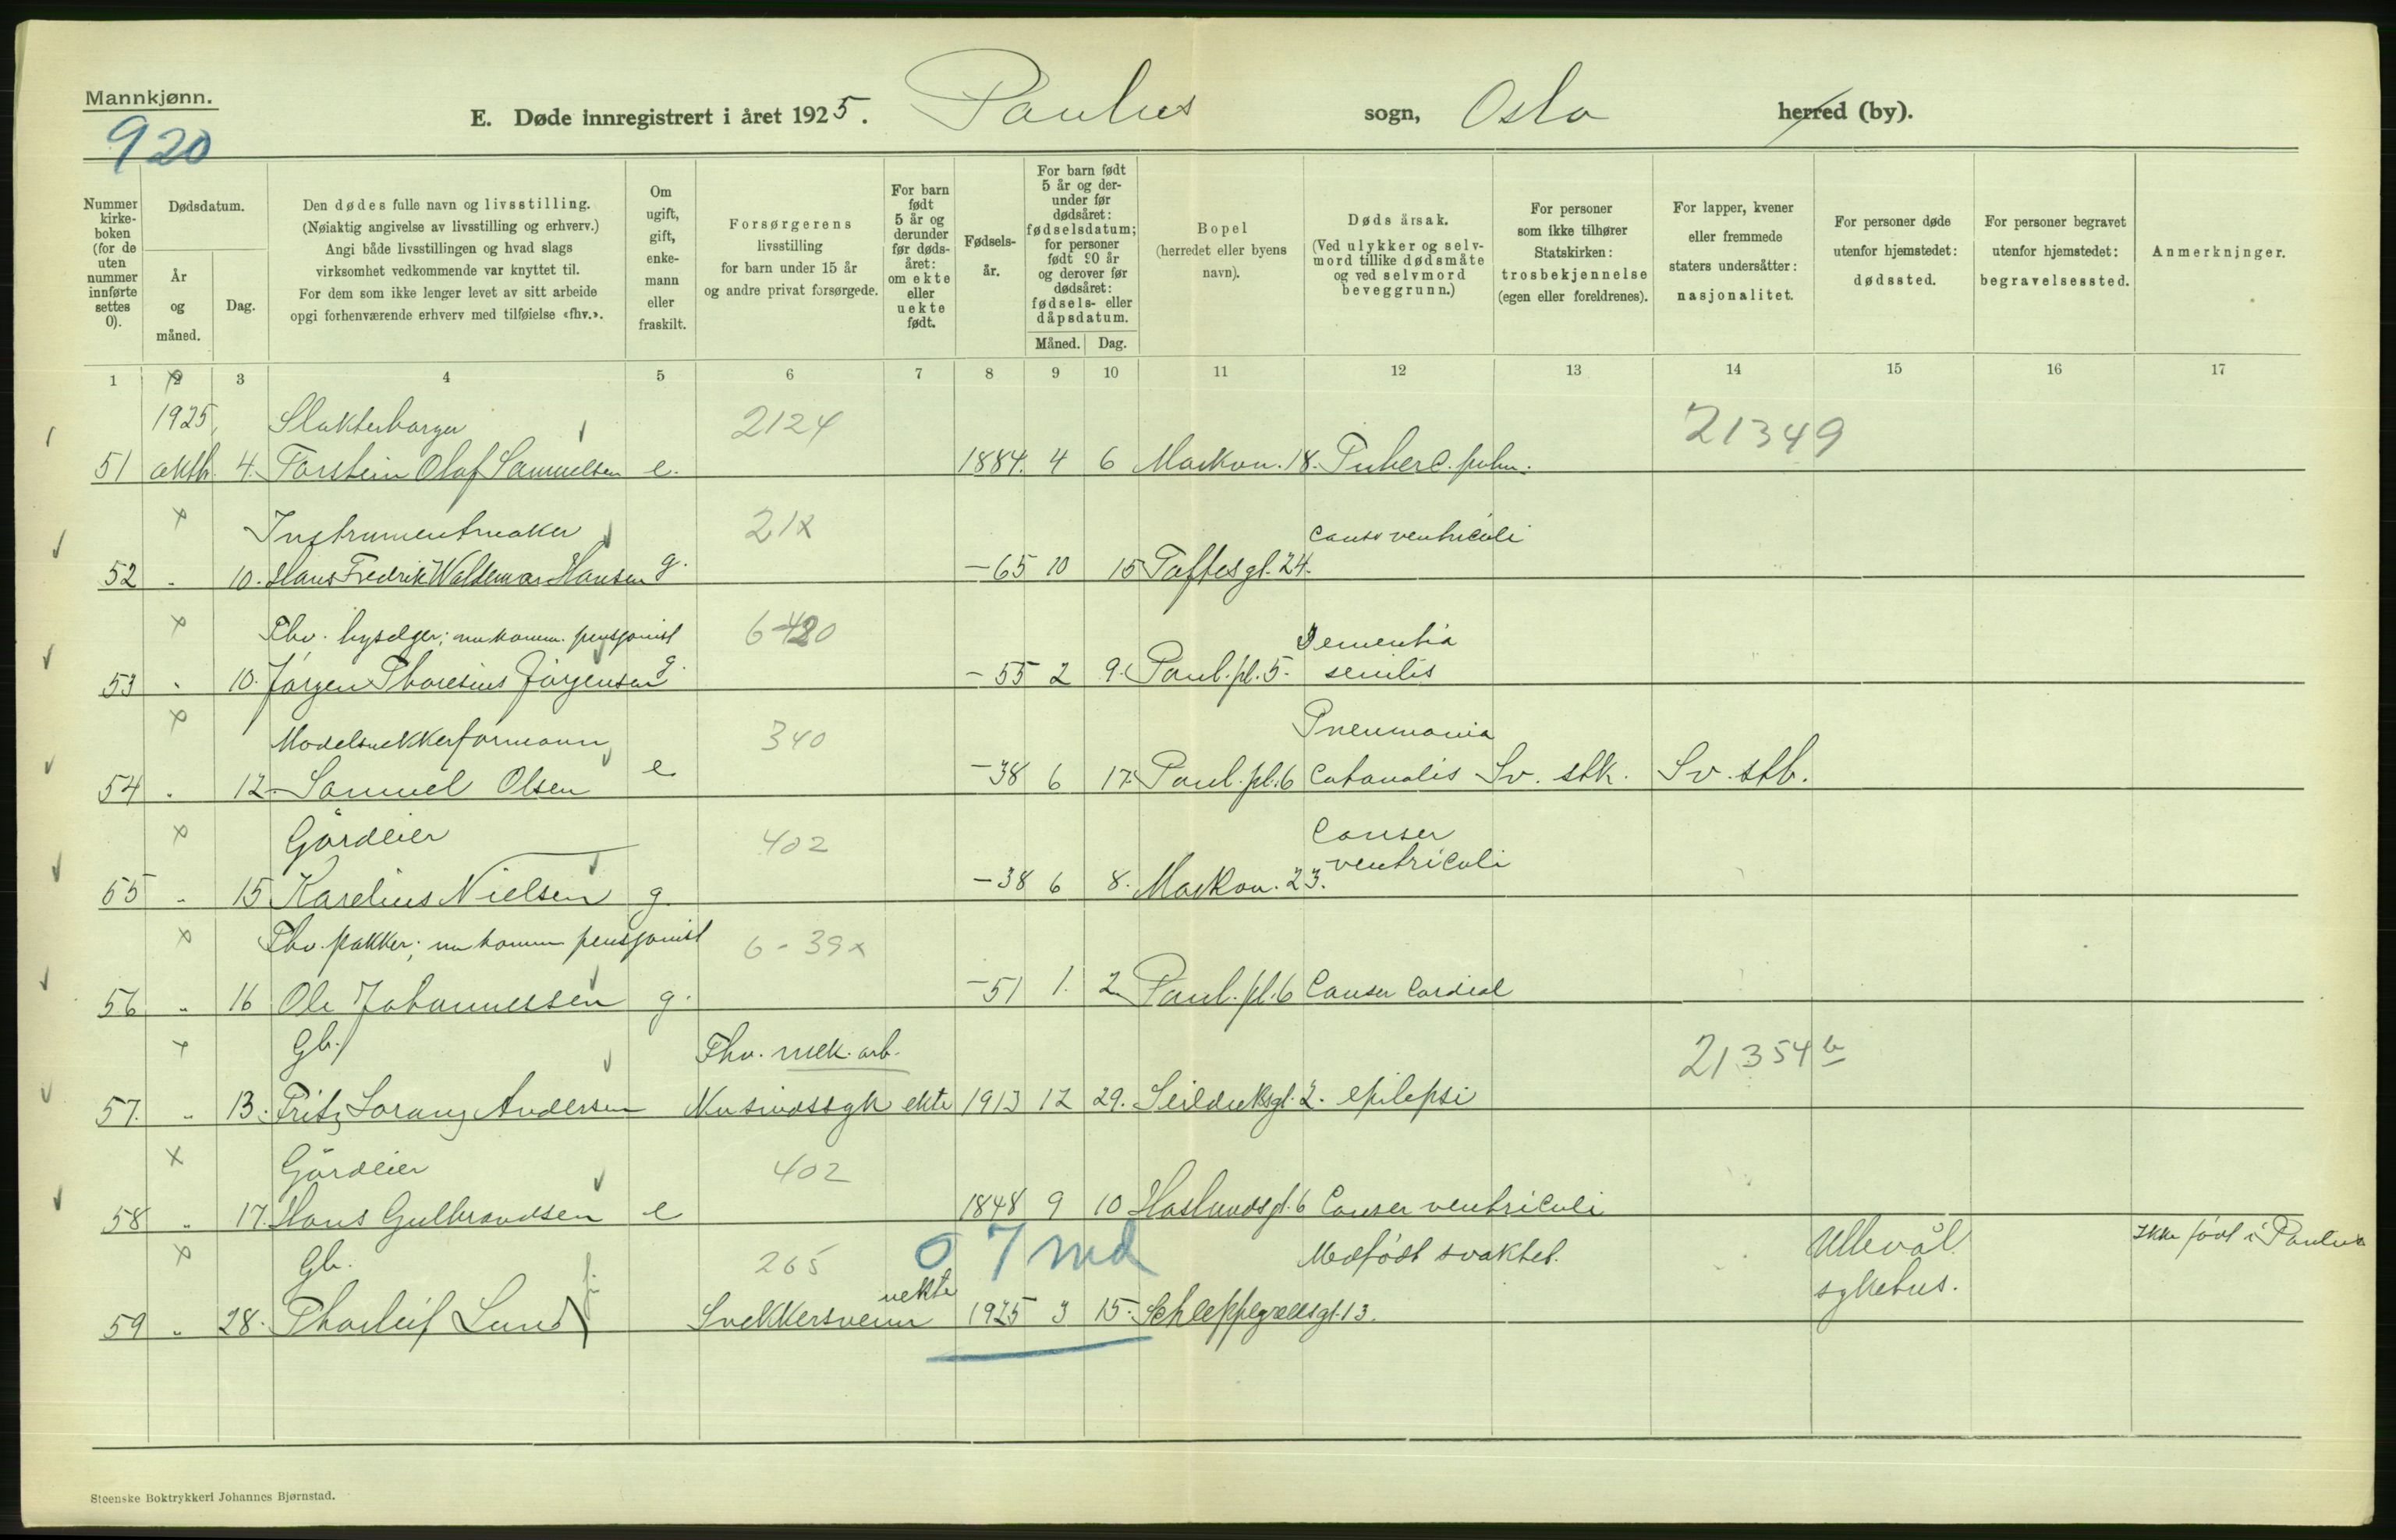 Mannkjønn.
920
E. Døde innregistrert i året 1925. Paulus sogn, Oslo herred (by).
Nummer kirke-boken (for de uten nummer innførte settes 0).
Dødsdatum.
År og måned.
Dag.
Den dødes fulle navn og livsstilling.
(Nøiaktig angivelse av livsstilling og erhverv.)
Angi både livsstillingen og hvad slags
virksomhet vedkommende var knyttet til.
For dem som ikke lenger levet av sitt arbeide
opgi forhenværende erhverv med tilføielse «fhv.».
Om ugift, gift, enke-mann eller fraskilt.
Forsørgerens
livsstilling
for barn under 15 år
og andre privat forsørgede.
For barn født 5 år og derunder før døds-året: om ekte eller uekte født.
Fødsels-år.
For barn født 5 år og der-under før dødsåret: fødselsdatum; for personer født 90 år og derover før dødsåret: fødsels- eller dåpsdatum.
Måned. Dag.
Bopel
(herredet eller byens
navn).
Døds årsak.
(Ved ulykker og selv-
mord tillike dødsmåte
og ved selvmord
beveggrunn.)
For personer
som ikke tilhører
Statskirken:
trosbekjennelse
(egen eller foreldrenes).
For lapper, kvener
eller fremmede
staters undersåtter:
nasjonalitet.
For personer døde
utenfor hjemstedet:
dødssted.
For personer begravet
utenfor hjemstedet:
begravelsessted.
Anmerkninger.
1 2 3 4 5 6 7 8 9 10 11 12 13 14 15 16 17
1925 2124 21349
51 4. Torstein Olaf Samuelsen e. 1884. 4 6 Markv. 18. Tuberc. pulm.
Instrumentmaker 21x ventriculi
52 " 10. Hans Fredrik Waldemar Hansen g. -65 10 15 Toftesgt. 24.
Fhv. nu komm. pensjonist 6-420 Dementia
53 " 10. Jørgen Thoresius Jørgensen g. -55 2 9. Paul. pl. 5. senilis
Modelsnekkerformann 340 Pneumonia
54 " 12 Samuel Olsen e -38 6 17. Paul. pl. 6 Sv. stk. Sv. stb.
Gårdeier 402 Canser
55 " 15 Karelius Nielsen g. -38 6 8. Markv. 23. ventriculi
Fhv. pakker; nu komm pensjonist 6-39x
56 " 16 Ole Johannessen g. -51 1. 2 Paul. pl. 6 Canser
Gb. Fhv. mek. arb. 21354 b
57. " 13. Fritz Lorang Andersen ekte 1913 12 29. Seilduksgt. 2. epilepsi
Gårdeier 402
58 " 17. Hans Gulbrandsen e 1848 9 10 Haslundsgt. 6 Canser ventriculi
Gb. 265 0 7 md Medfødt svakhet. Ullevål Ikke født i Paulus
59 " 28. Thorleif Lund Snekkersvenn uekte 1925 3 15. Schleppegrellsgt. 13. sykehus.
Steenske Boktrykkeri Johannes Bjørnstad.